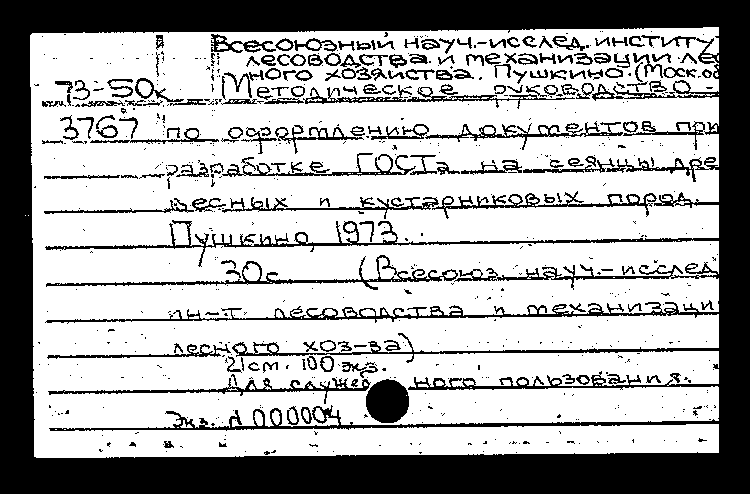 Всесоюзный науч.-исслед. институ
лесоводства и механизации лес
ного хозяйства. Пушкино. (Моск. об
73-50к Методическое руководство -
3767 по оформлению документов при
разработке ГОСТа на сеянцы дре
весных и кустарниковых пород.
Пушкино, 1973.
30с (Всесоюз. науч.-исслед
ин-т лесоводства и механизаци
лесного хоз-ва)
21см. 100 экз.
Для служеб ного пользования.
Экз. № 000004.